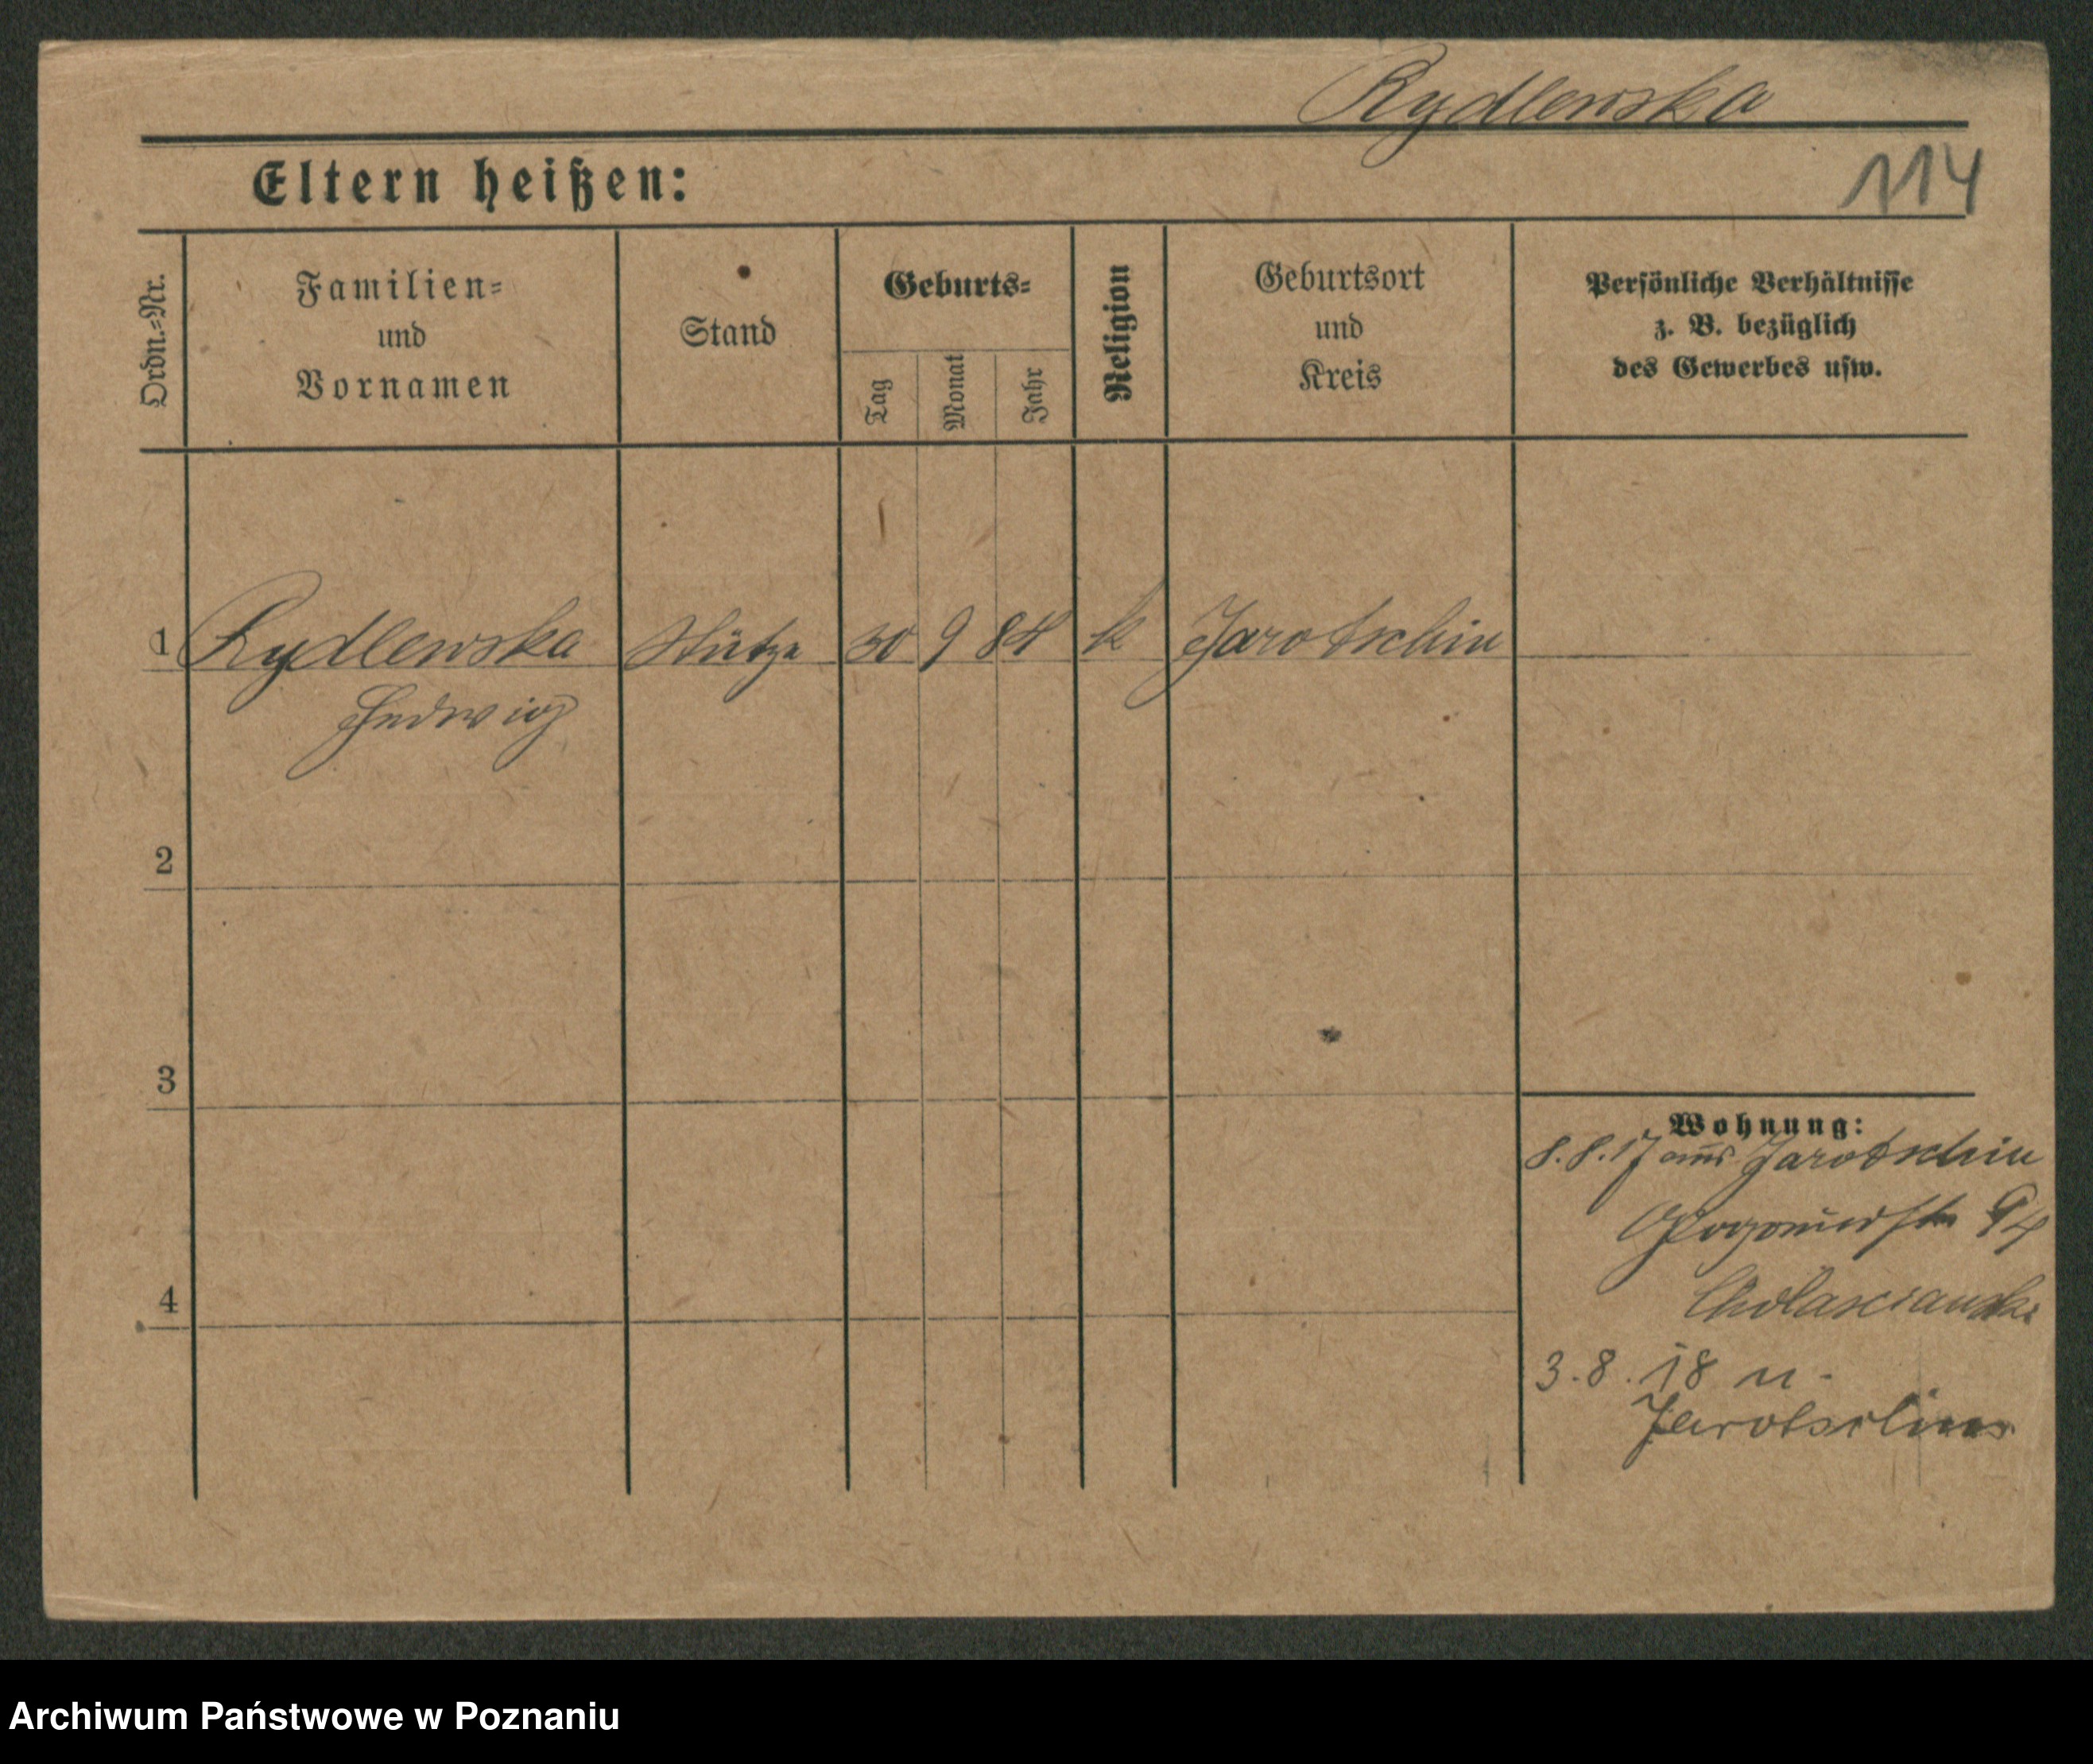 Rydlewska
114
Eltern heißen:
Ordn.=Nr.
Familien=
und
Vornamen
Stand
Geburts=
Tag
Monat
Jahr
Religion
Geburtsort
und
Kreis
Persönliche Verhältnisse
z. B. bezüglich
des Gewerbes usw.
1 Rydlewska Stütze 30 9 84 k Jarotschin
Hedwig
2
3
Wohnung:
8.8.17 aus Jarotschin
94
4
3.8.18 n.
Jarotschin
Archiwum Państwowe w Poznaniu